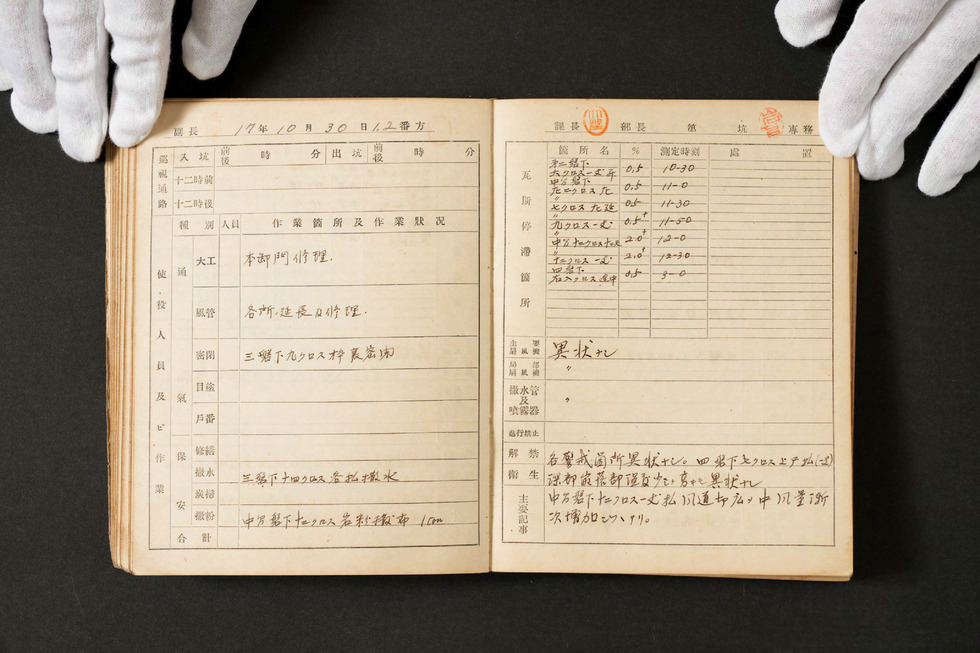 副長 17年10月30日1.2番方
巡視通路 入坑 前後 時 分 出坑 前後 時 分
十二時前
十二時後
使役人員及ビ作業
種別 人員 作業箇所及作業狀況
通氣
大工 本卸門修理.
風管 各所延長及修理.
密閉 三盤下九クロス枠裏密閉
目塗
戸番
保安
修繕
撒水 三盤下十四クロス各払撒水
炭掃
撒粉 中万盤下十二クロス岩粉撒布
合計
課長 部長 第 坑 専務
瓦斯停滯箇所
箇所名 % 測定時刻 處置
0.5 10-30
中万盤下
0.5 11-0
〃
七クロス左延 0.5 11-30
〃
九クロス一丈 0.5⁺ 11-50
〃
2.0⁺ 12-0
〃
十二クロス一丈 2.0⁺ 12-30
四盤下
0.5 3-0
主要扇風機 異状ナシ
局部扇風機 〃
撒水管及噴霧器 〃
進行禁止
解禁
衛生
主要記事
各警戒箇所異状ナシ。四盤下七クロス上戸払
異状ナシ
中万盤下十二クロス一丈払風道切広メ中風量漸
次増加シツヽアリ。